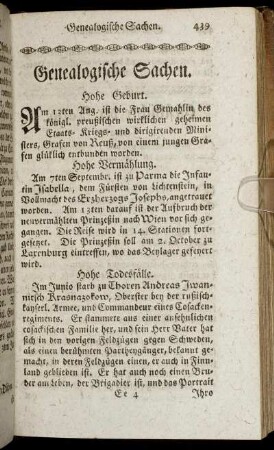 Genealogische Sachen. 439
Genealogische Sachen.
Hohe Geburt.
Am 12ten Aug. ist die Frau Gemahlin des
königl. preußischen wirklichen geheimen
Etaats- Kriegs- und dirigirenden Mini-
sters, Grafen von Reuß, von einem jungen Gra-
fen glüklich entbunden worden.
Hohe Vermählung.
Am 7ten Septembr. ist zu Parma die Infan-
tin Isabella, dem Fürsten von Lichtenstein, in
Vollmacht des Erzherzogs Josephs, angetrauet
worden. Am 13ten darauf ist der Aufbruch der
neuvermählten Prinzeßin nach Wien vor sich ge-
gangen. Die Reise wird in 14. Stationen fort-
gesetzet. Die Prinzeßin soll am 2. October zu
Laxenburg eintreffen, wo das Beylager gefeyert
wird.
Hohe Todesfälle.
Im Junio starb zu Thoren Andreas Iwan-
nirsch Krasnazokow, Oberster bey der rußisch-
kayserl. Armee, und Commandeur eines Cosacken-
regiments. Er stammete aus einer ansehnlichen
cosackischen Familie her, und sein Herr Vater hat
sich in den vorigen Feldzügen gegen Schweden,
als einen berühmten Partheygänger, bekannt ge-
macht, in deren Feldzügen einen, er auch in Finn-
land geblieben ist. Er hat auch noch einen Bru-
der am Leben, der Brigadier ist, und das Portrait
Ee 4 Ihro